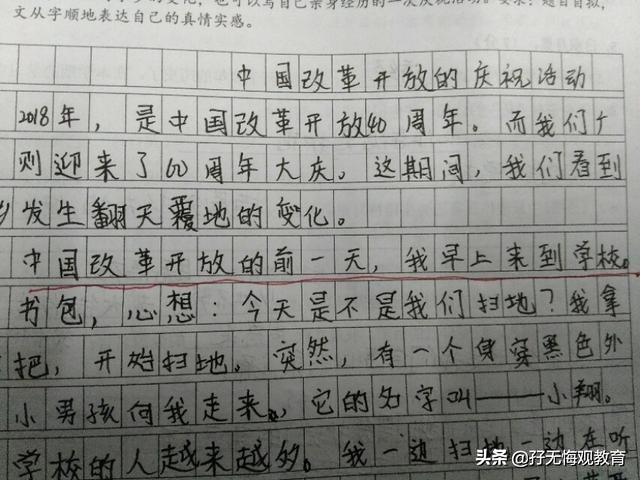 的变化,也可以写自己亲身经历的一次庆祝活动。要求:题目自拟,
文从字顺地表达自己的真情实感。
中国改革开放的庆祝活动
2018年,是中国改革开放40周年。而我们个
则迎来了60周年大庆。这期间,我们看到
发生翻天覆地的变化。
中国改革开放的前一天,我早上来到学校。
书包,心想:今天是不是我们扫地?我拿
把,开始扫地。突然,有一个身穿黑色外
小男孩向我走来。它的名字叫——小翔。
学校的人越来越多。我一边扫地一边在听
头条 @孖无悔观教育